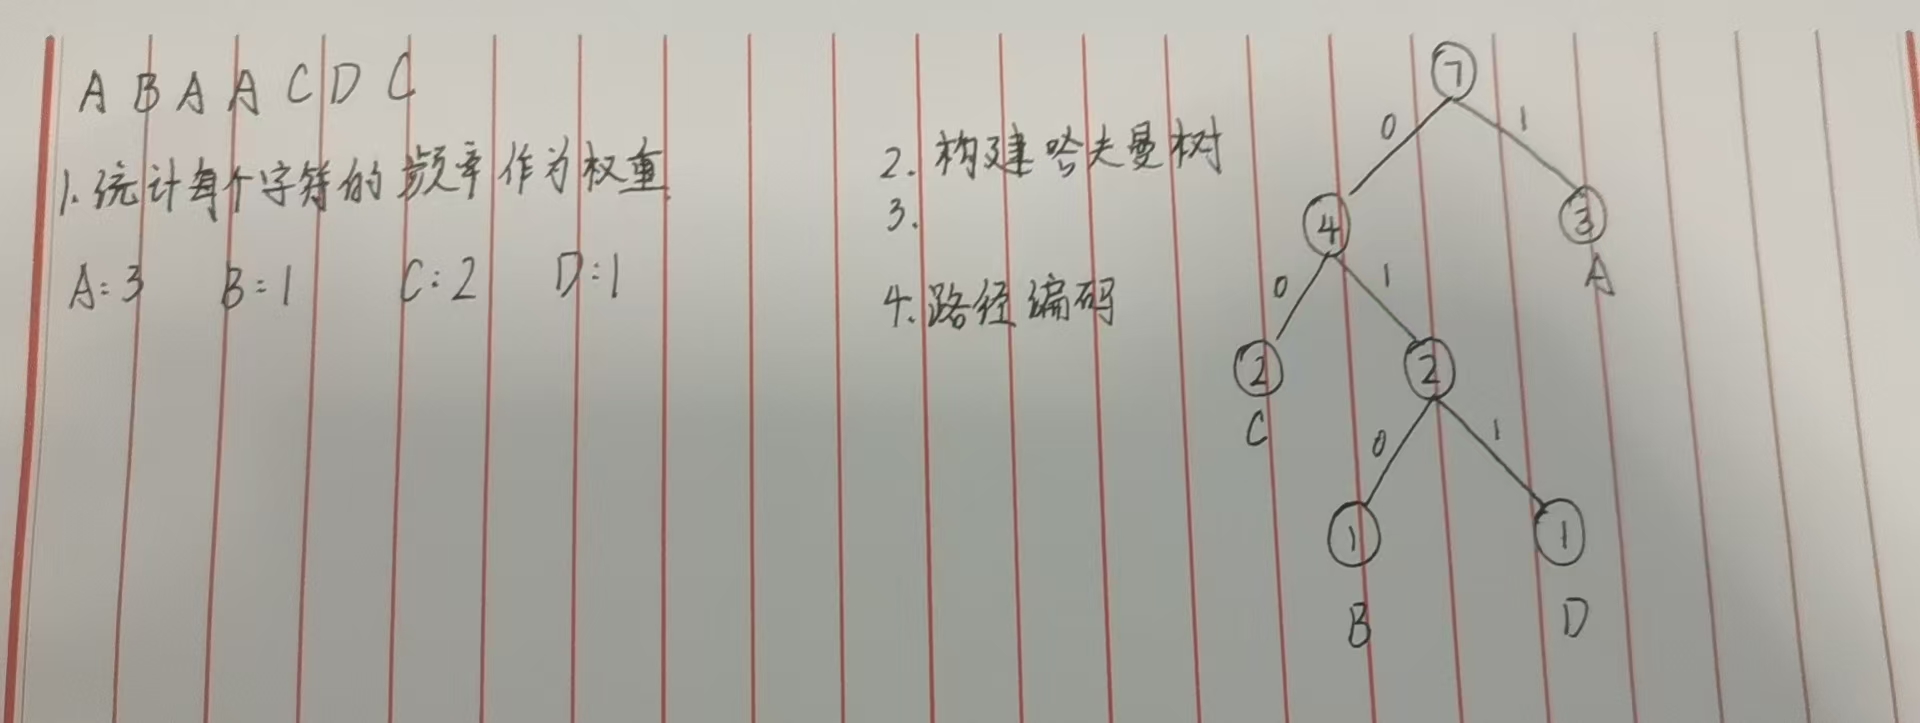 A B A A C D C
1. 统计每个字符的频率作为权重
A:3 B:1 C:2 D:1
2. 构建哈夫曼树
3.
4. 路径编码
7
0 1
4 3
A
0 1
2 2
C
0 1
1 1
B D